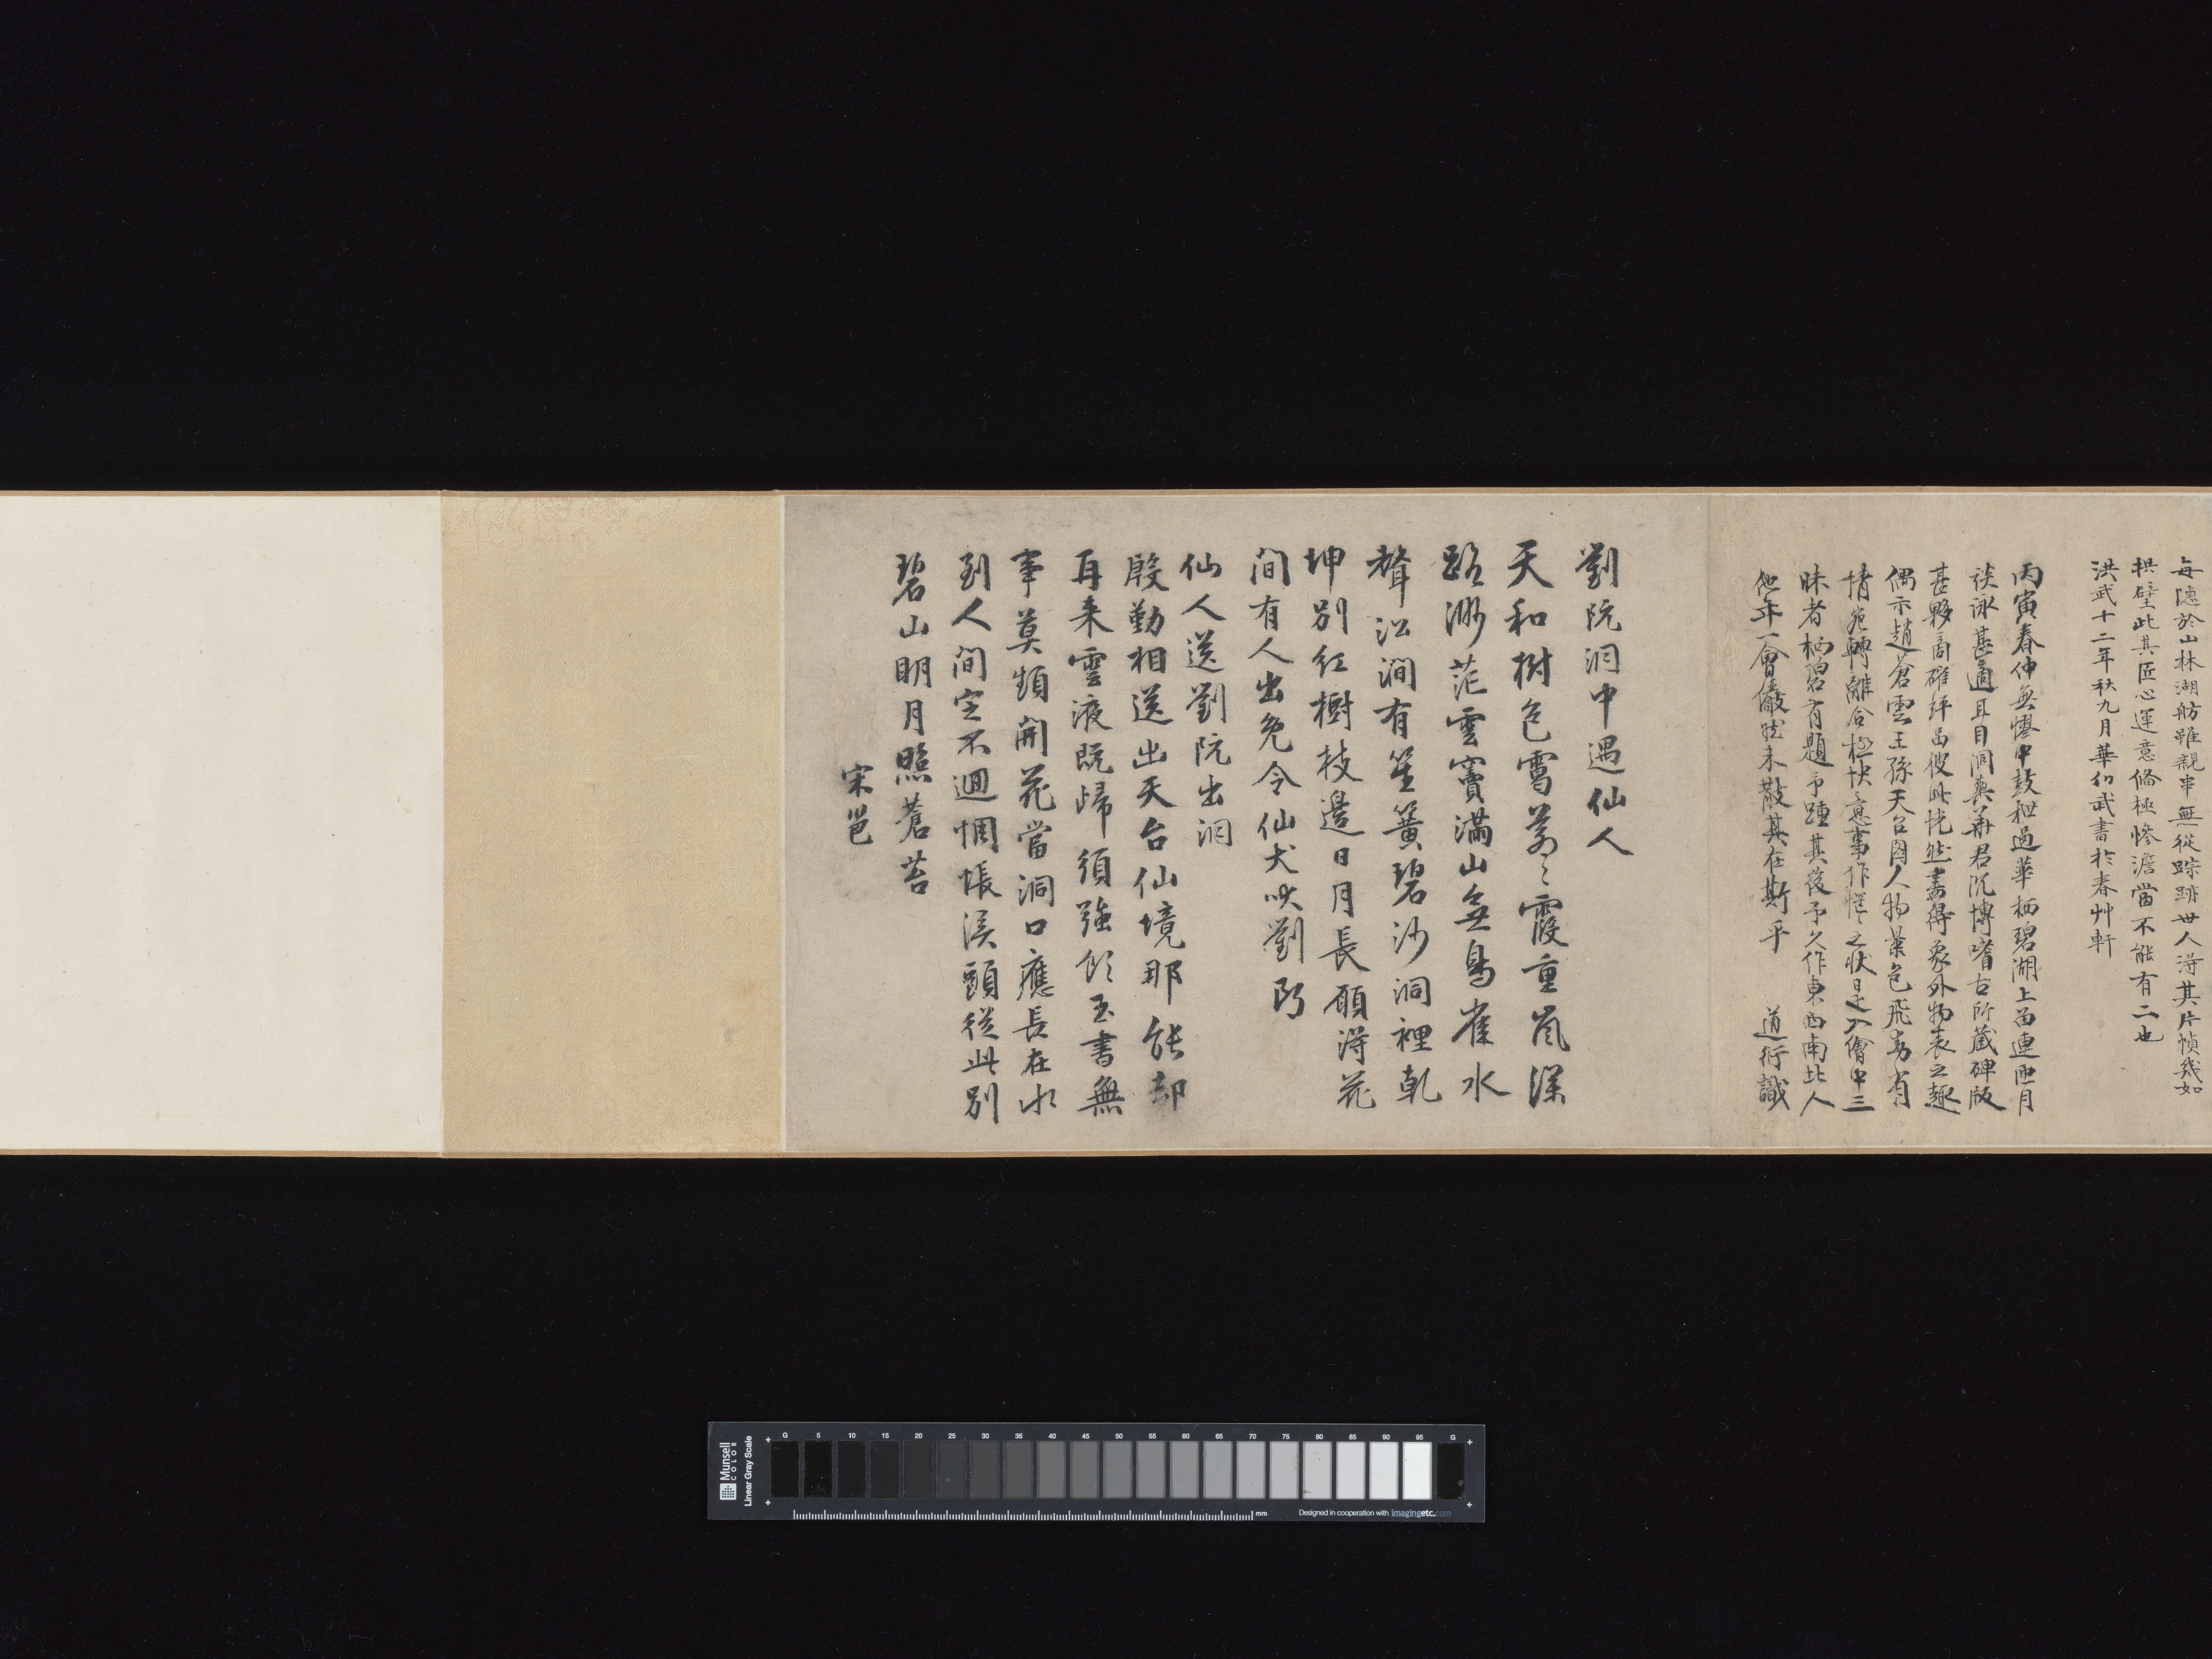 每隱於山林湖舫雖親串無從踪跡世人淂其片幀幾如
拱璧此其匠心運意倐極慘澹當不能有二也
洪武十二年秋九月華幻武書於春艸軒
丙寅春仲無憀中鼓枻過華栖碧湖上留連匝月
談詠甚適耳目洞爽並君沉博嗜古所藏碑版
甚夥商碓評畐彼此恍然盡得象外物表之趣
偶示趙蒼雲王孫天台圖人物景色飛動有
情宛轉離合極快意事作惺之狀是入繪中三
昧者栖碧有題予踵其後予久作東西南北人
他年一會儼然未散其在斯乎
道衍識
劉阮洞中遇仙人
天和樹色靄蒼〻霞重嵐深
路渺茫雲竇滿山無鳥雀水
聲沿澗有笙簧碧沙洞裡乹
坤別紅樹枝邊日月長願淂花
間有人出免令仙犬吠劉阮
仙人送劉阮出洞
殷勤相送出天台仙境那能却
再来雲液既歸須強飲玉書無
事莫頻開花當洞口應長在水
到人間定不迴惆悵溪頭從此別
碧山明月照蒼苔
宋邕
Munsell
COLOR
Linear Gray Scale
G 5 10 15 20 25 30 35 40 45 50 55 60 65 70 75 80 85 90 95 G
mm
Designed in cooperation with imagingetc.com